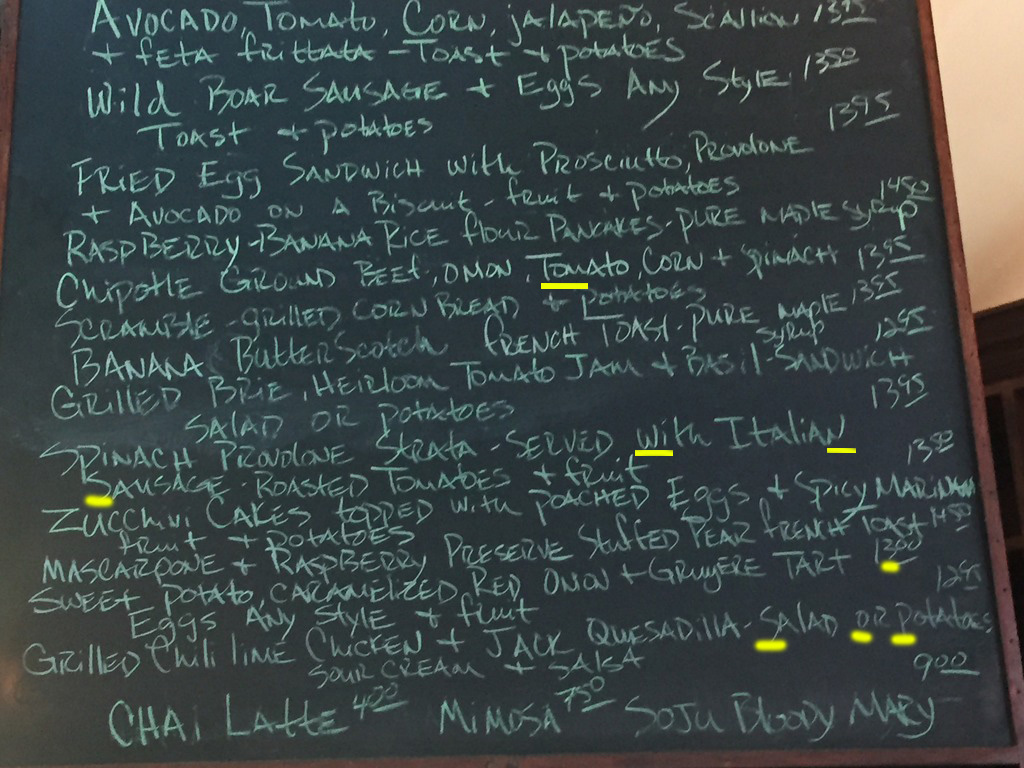 AVOCADO, TOMATO, CORN, JALAPEÑO, SCALLION 13.95
+ FETA FRITTATA - TOAST + POTATOES
WILD BOAR SAUSAGE + EGGS ANY STYLE 13.50
TOAST + POTATOES 13.95
FRIED EGG SANDWICH WITH PROSCIUTTO, PROVOLONE
+ AVOCADO ON A BISCUIT - FRUIT + POTATOES 14.50
RASPBERRY-BANANA RICE FLOUR PANCAKES - PURE MAPLE SYRUP
CHIPOTLE GROUND BEEF, ONION, TOMATO, CORN + SPINACH 13.95
SCRAMBLE - GRILLED CORN BREAD + POTATOES 13.95
BANANA BUTTERSCOTCH FRENCH TOAST - PURE MAPLE SYRUP 12.95
GRILLED BRIE, HEIRLOOM TOMATO JAM + BASIL - SANDWICH
SALAD OR POTATOES 13.95
SPINACH PROVOLONE STRATA - SERVED WITH ITALIAN
SAUSAGE - ROASTED TOMATOES + FRUIT 13.50
ZUCCHINI CAKES TOPPED WITH POACHED EGGS + SPICY MARINARA
FRUIT + POTATOES
MASCARPONE + RASPBERRY PRESERVE STUFFED PEAR FRENCH TOAST 14.50
SWEET POTATO CARAMELIZED RED ONION + GRUYERE TART 13.00
EGGS ANY STYLE + FRUIT 12.95
GRILLED CHILI LIME CHICKEN + JACK QUESADILLA - SALAD OR POTATOES
SOUR CREAM + SALSA
CHAI LATTE 4.00 MIMOSA 7.50 SOJU BLOODY MARY 9.00